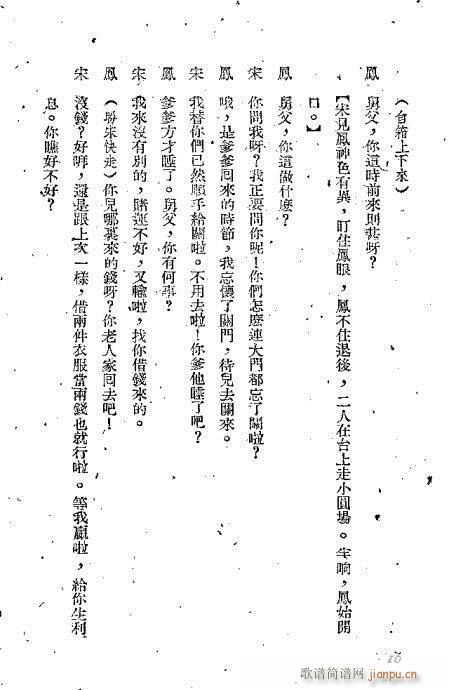 (自箱上下來)
鳳 舅父,你這時前來則甚呀?
【宋見鳳神色有異,盯住鳳眼,鳳不住退後,二人在台上走小圓場。半响,鳳始開
口。】
鳳 舅父,你這做什麼?
宋 你問我呀?我正要問你呢!你們怎麽連大門都忘了關啦?
鳳 哦,是爹爹回來的時節,我忘懷了關門,待兒去關來。
宋 我替你們已然順手給關啦。不用去啦!你爹他睡了吧?
鳳 爹爹方才睡了。舅父,你有何事?
宋 我來沒有別的,賭運不好,又輸啦,找你借錢來的。
鳳 (盼宋快走)你兒哪裏來的錢呀?你老人家回去吧!
宋 沒錢?好啊,還是跟上次一樣,借兩件衣服當兩錢也就行啦。等我贏啦,給你生利
息。你瞧好不好?
16
歌谱简谱网
jianpu.cn